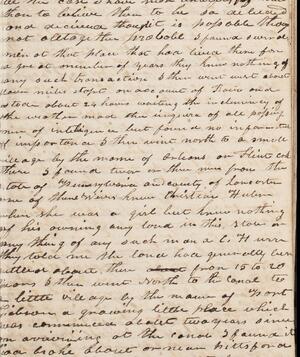 at the case I have not
tion to believe them to be so
and decieved though it is possible though
not altogether probable I found several
men at that place that had lived there for
a great number of years they know nothing of
any such transaction I then went about
seven miles stopt on account of Rain and
stood about 24 hours waiting the inclemency of
the weather made the inquire of all passing
men of inteligence but found no information
of importance I then went north to a small
village by the name of Orleans on Flint Creek
there I found two or three men from the
state of Pennsylvania and county of Lancaster
one of them knew Christian Huber
when she was a girl but knew nothing
of his owning any land in this State or
any thing of any such man as C. H
they told me the land had generally been
settled about there from 15 to 20
years I then went North to the canal to
a little village by the name of Port
Gibson a growing little place which
was commenced about two years since
on arriveing at the canal I found it
had broke about a mile